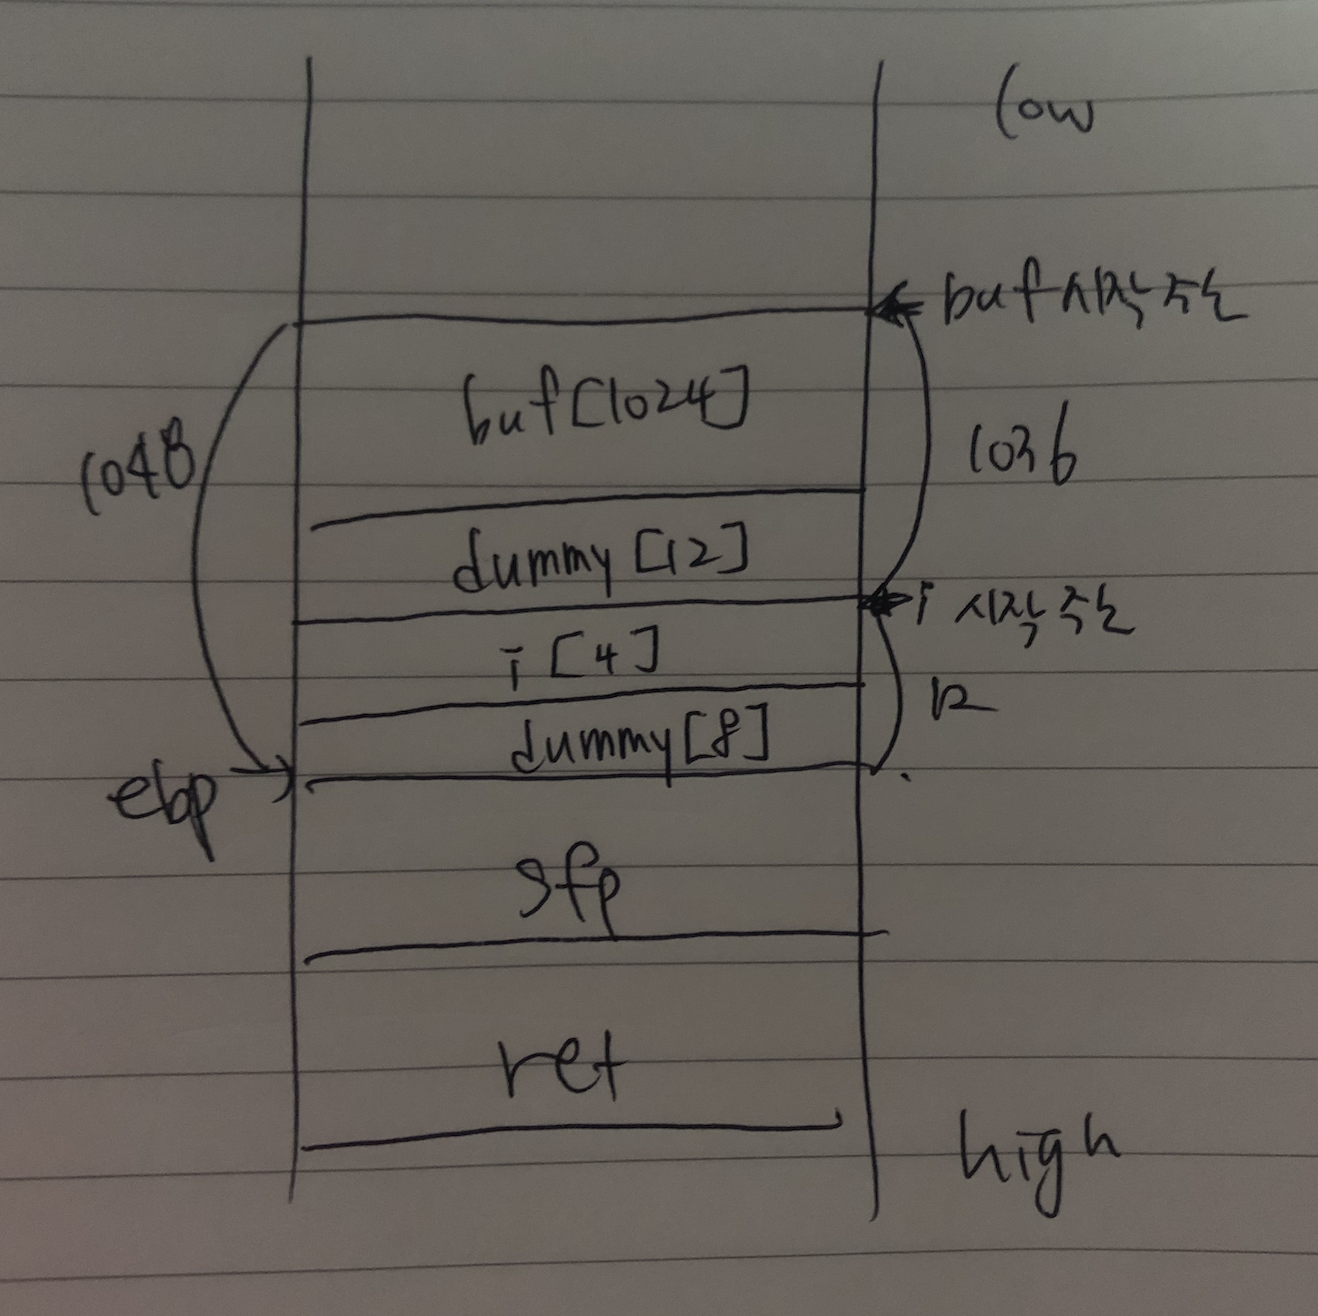 low
buf 시작 주소
buf[1024]
1048
1036
dummy [12]
i 시작 주소
i [4]
12
dummy[8]
ebp
sfp
ret
high